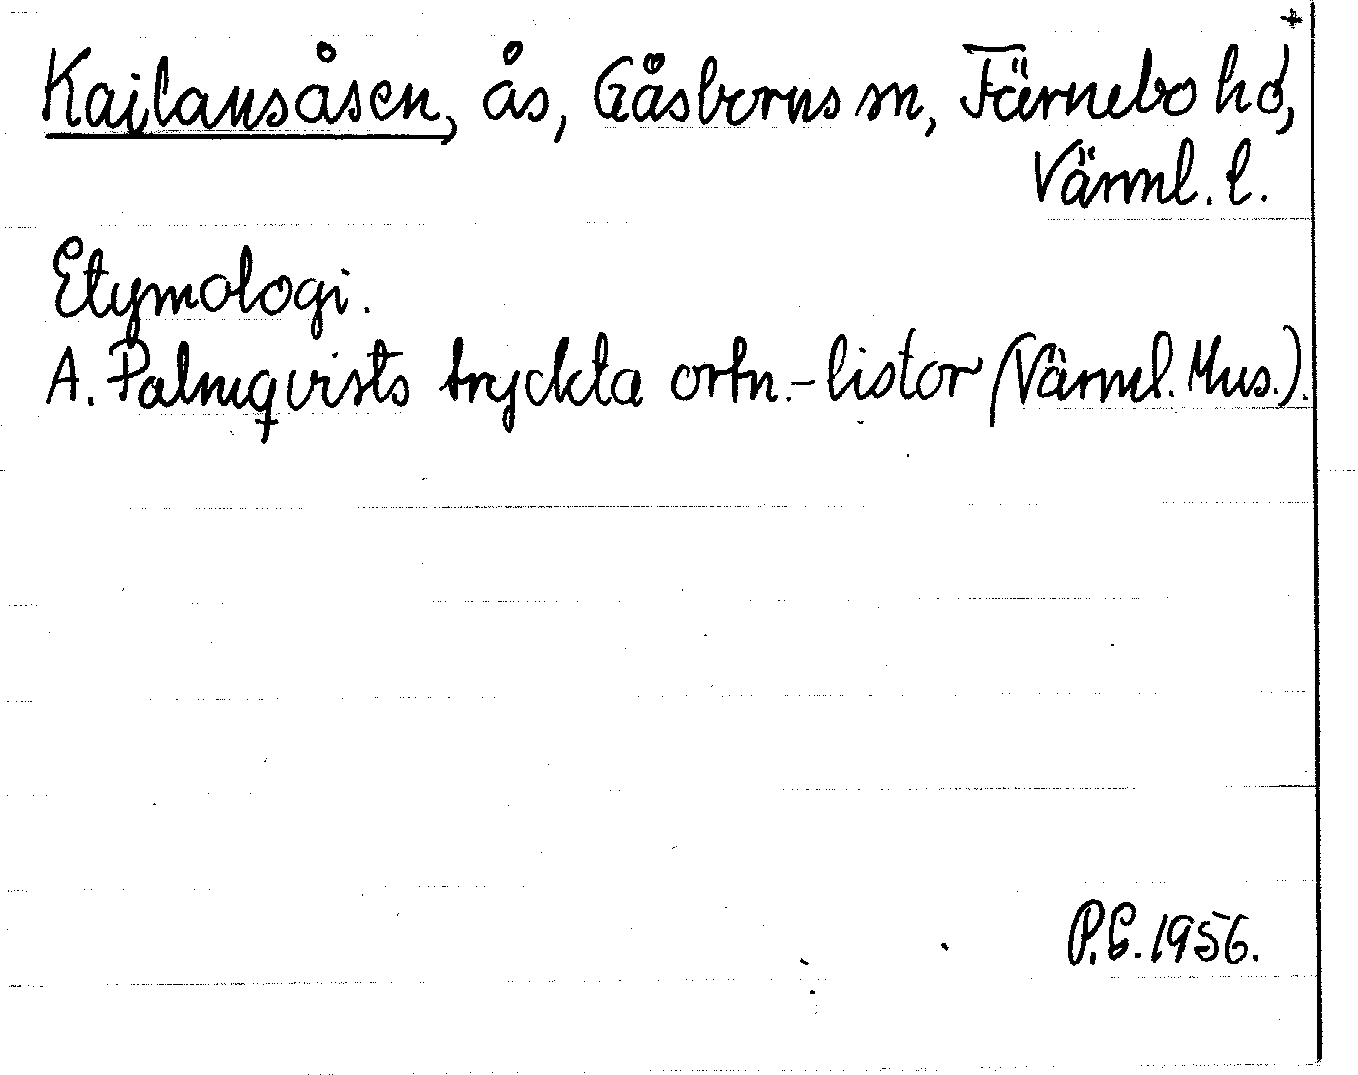 +
Kailansåsen, ås, Gåsborns sn, Färnebo hd,
Värml. l.
Etymologi.
A. Palmqvists tryckta ortn.-listor (Värml. Mus.).
P.G. 1956.